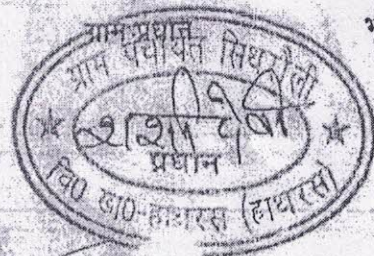 ग्राम प्रधान
ग्राम पंचायत सिथरौली
शशी देवी
प्रधान
वि0 खा0-हाथरस (हाथरस)